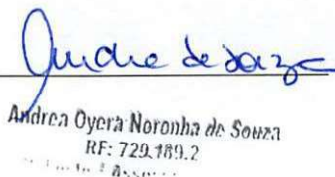 Andrea de Souza
Andrea Oyera Noronha de Souza
RF: 729.189.2